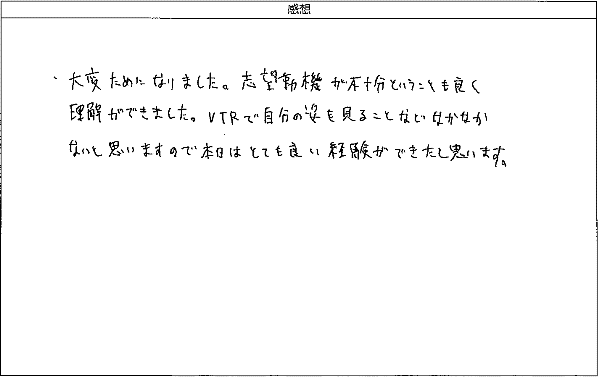 感想
・大変ためになりました。志望動機が不十分ということも良く
理解ができました。VTRで自分の姿を見ることなどなかなか
ないと思いますので本日はとても良い経験ができたと思います。